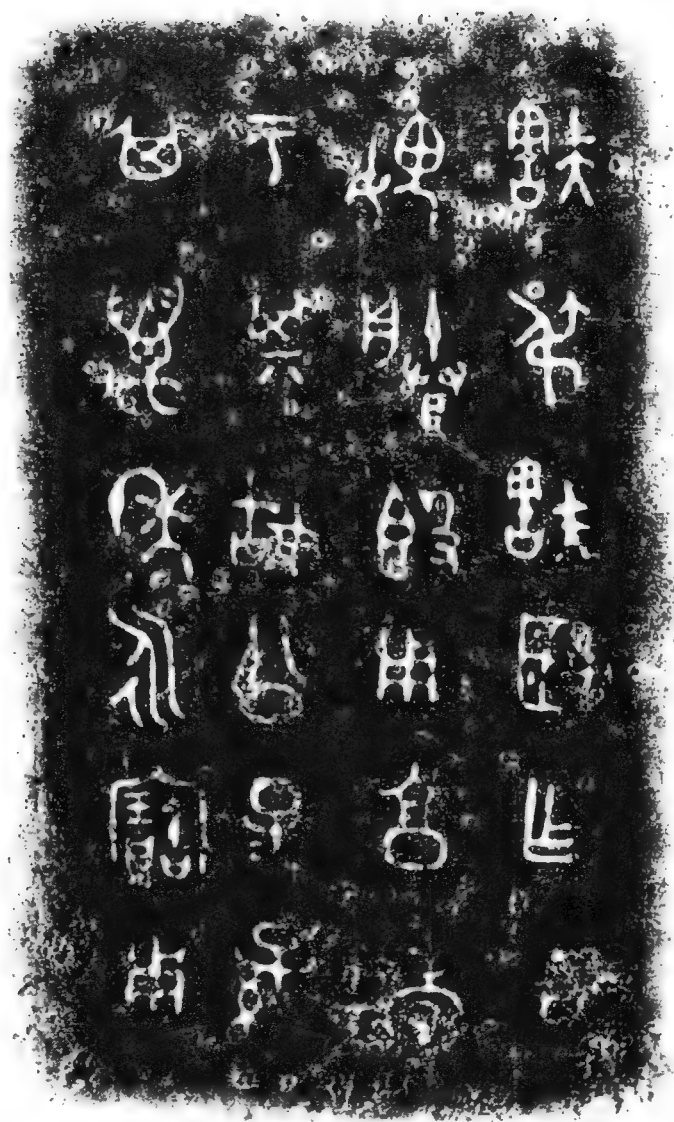 㝬弔㝬姬乍白
媿賸𣪘用亯孝
于其姑公子孫
其萬年永寶用